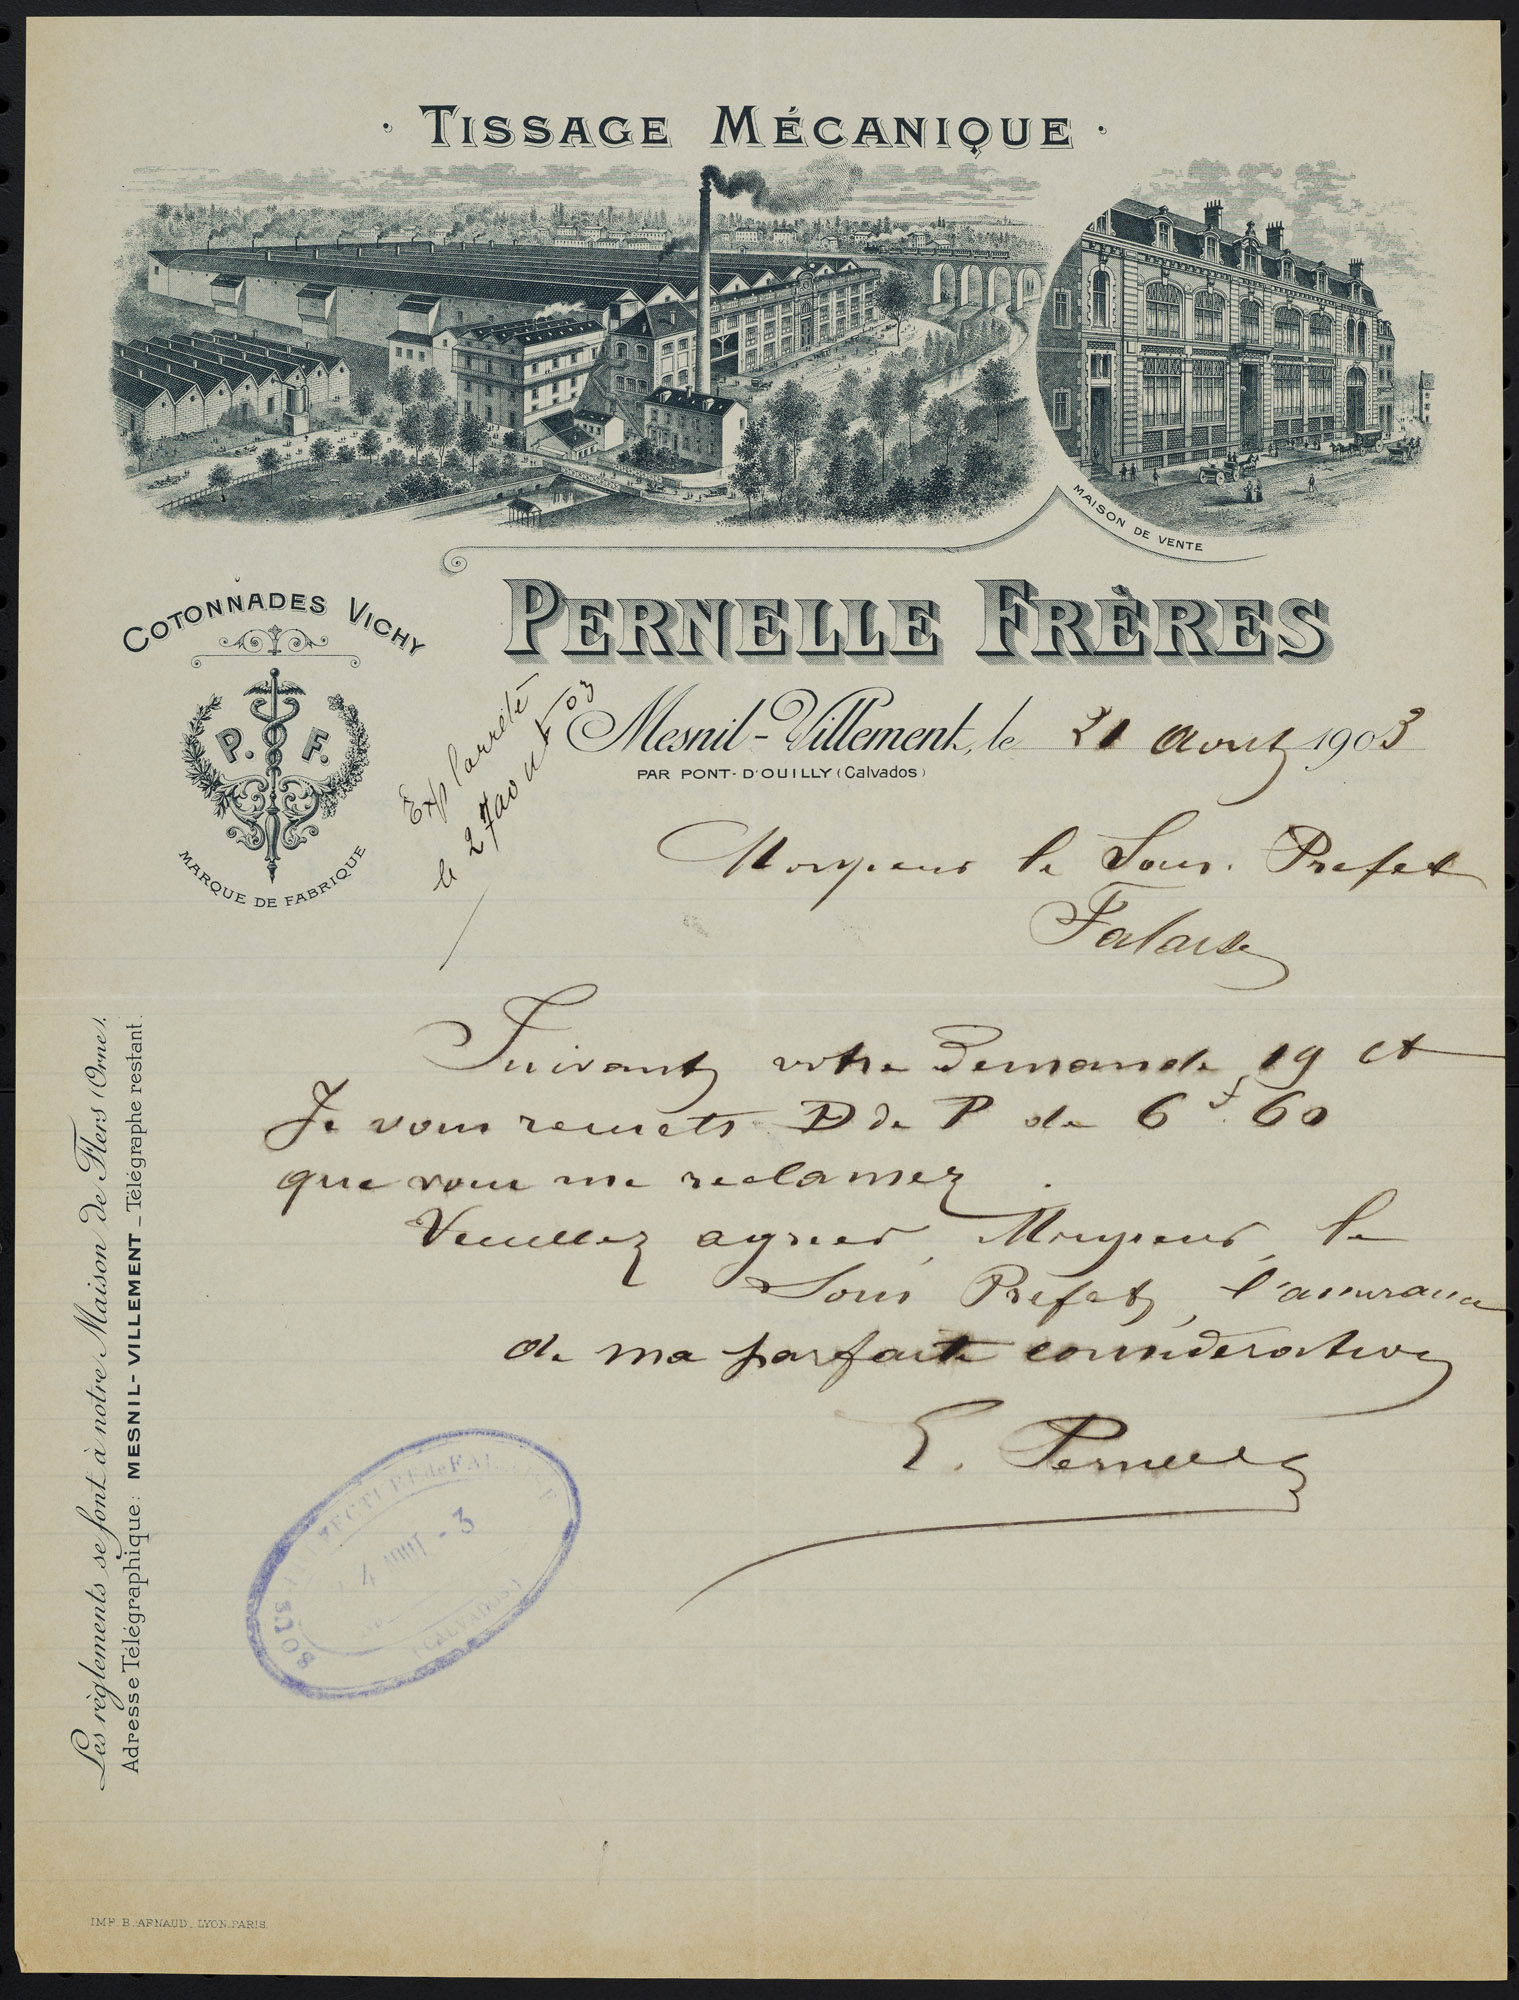 TISSAGE MÉCANIQUE
MAISON DE VENTE
COTONNADES VICHY
P. F.
MARQUE DE FABRIQUE
PERNELLE FRÈRES
Mesnil-Villement, le 21 Aout 1903
PAR PONT-D'OUILLY (Calvados)
Exp l'arrêté
le 27 aout 03
Monsieur le Sous. Prefet
Falaise
Suivant votre Demande 19 ct
Je vous remets D de P de 6 f 60
que vous me reclamez.
Veuillez agréer, Monsieur, le
Sous Prefet, l'assurance
de ma parfaite considération
E. Pernelle
SOUS-PREFECTURE de FALAISE
4 AOUT - 3
(CALVADOS)
Les règlements se font à notre Maison de Flers (Orne).
Adresse Télégraphique: MESNIL-VILLEMENT _ Télégraphe restant.
IMP. B. ARNAUD, LYON-PARIS.